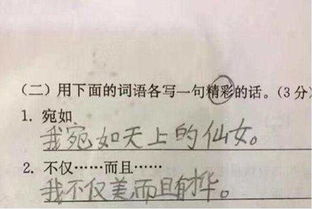 (二)用下面的词语各写一句精彩的话。(3分)
1. 宛如
我宛如天上的仙女。
2. 不仅……而且……
我不仅美而且有才华。